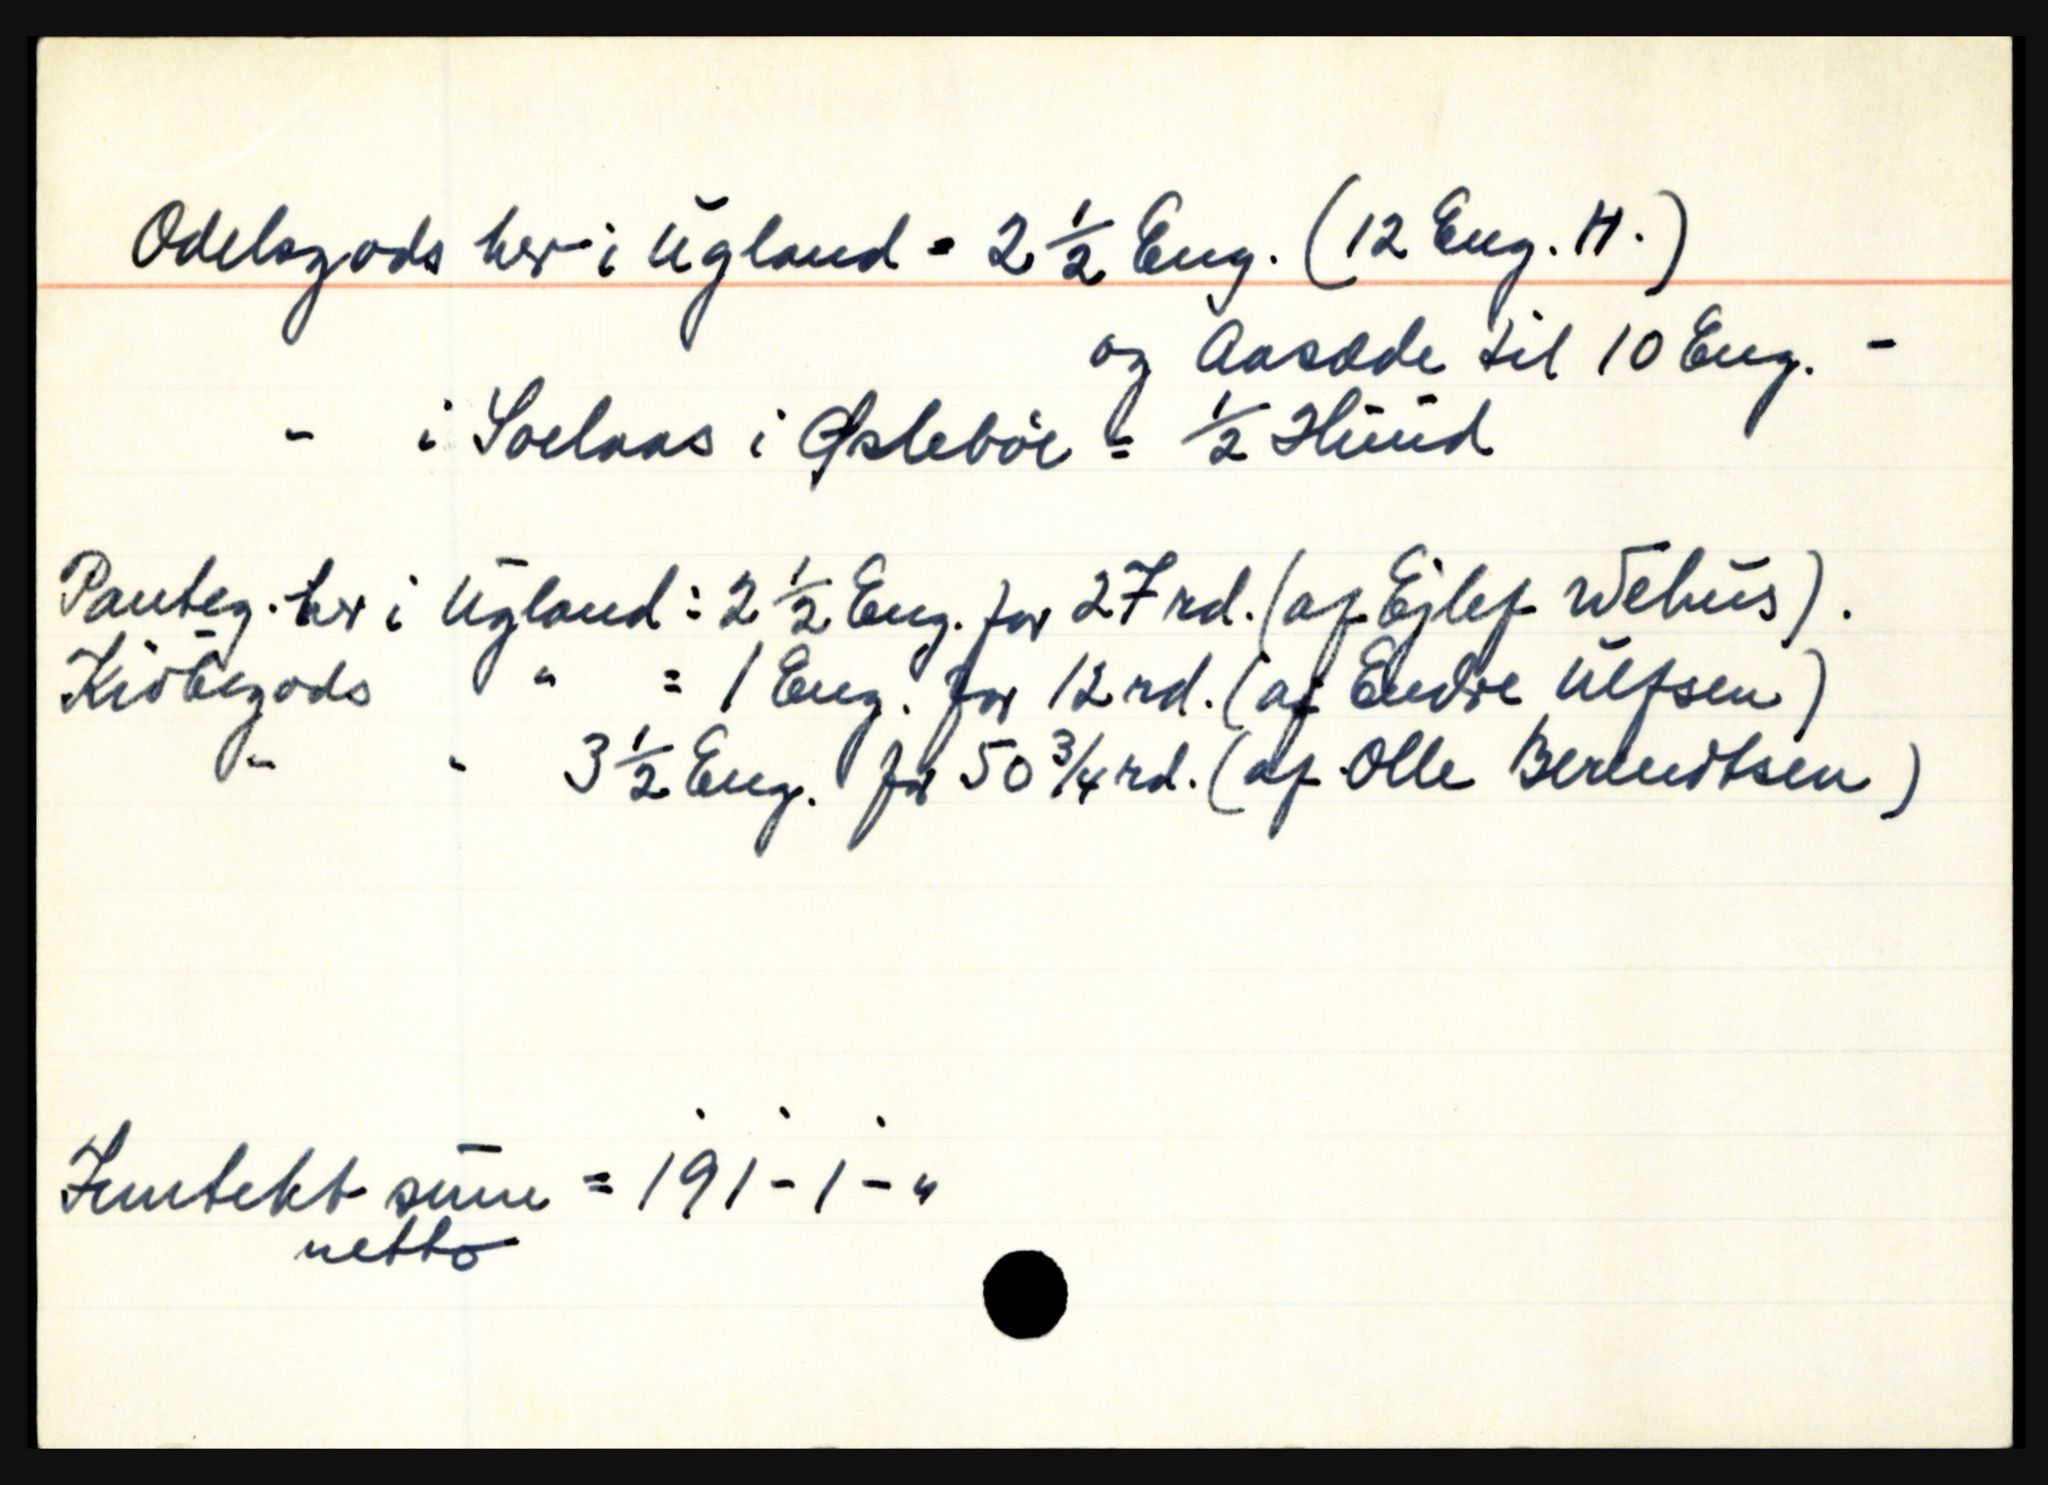 Odelsgods her i Ugland = 2 1/2 Eng. (12 Eng. H.)
og Aasæde til 10 Eng. -
- i Soelaas i Øslebøe = 1/2 Huud
Panteg. her i Ugland : 2 1/2 Eng. for 27 rd. (af Ejlef Wehus).
Kiöbegods " = 1 Eng. for 12 rd. (af Endre Ulfsen)
" " 3 1/2 Eng. for 50 3/4 rd. (af Olle Berendtsen)
Inntekt sum = 191 - 1 - "
netto